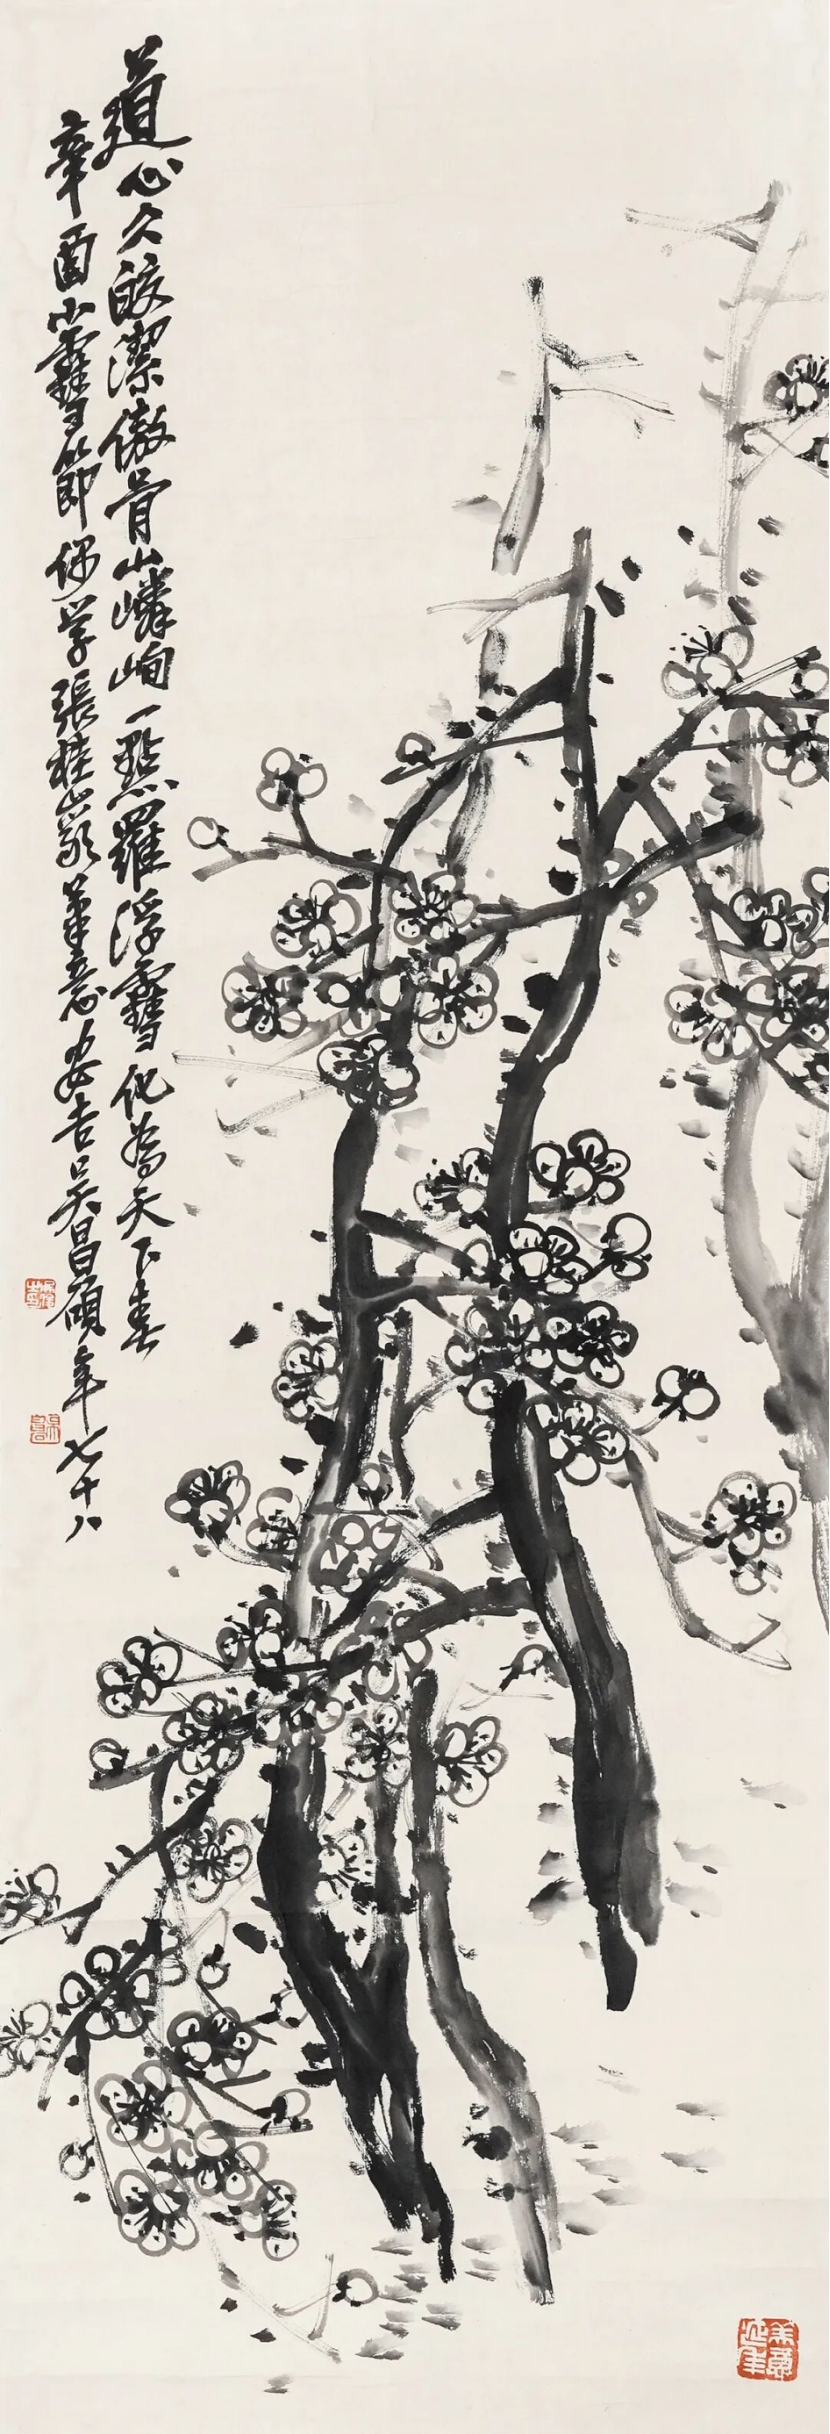 道心久皎潔傲骨山嶙峋一點羅浮雪化為天下春
辛酉小雪節偶學張桂巖筆意安吉吳昌碩年七十八
美意延年